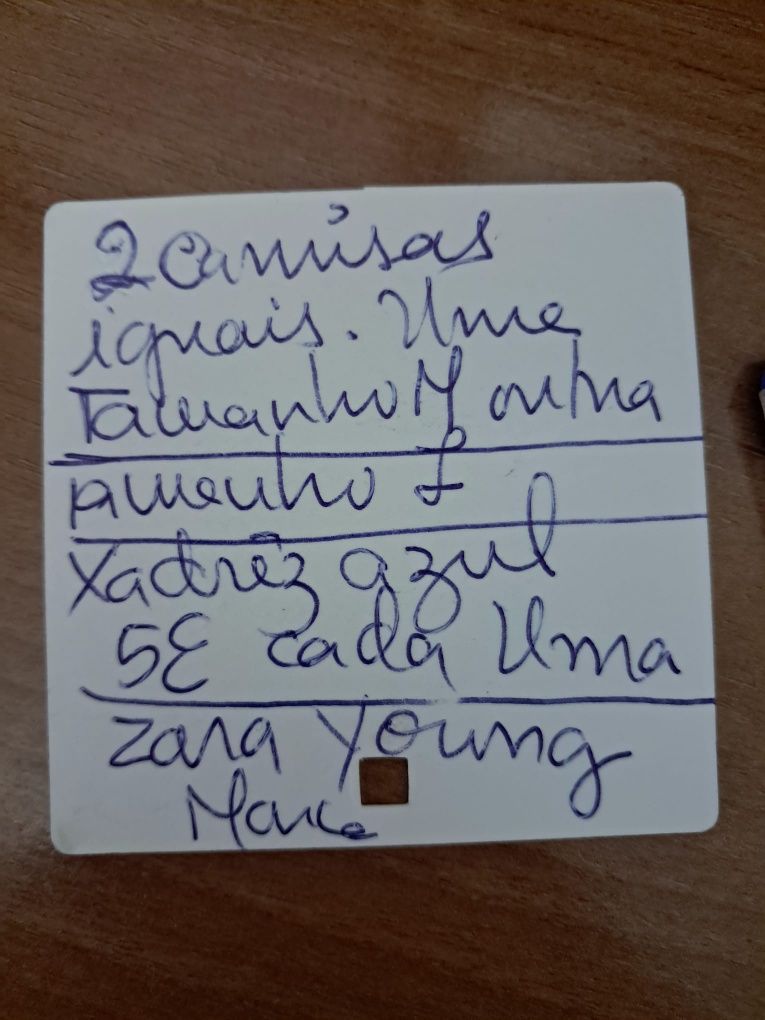 2 camisas
iguais. Uma
Tamanho M outra
tamanho L
Xadrêz azul
5€ cada Uma
Zara Young